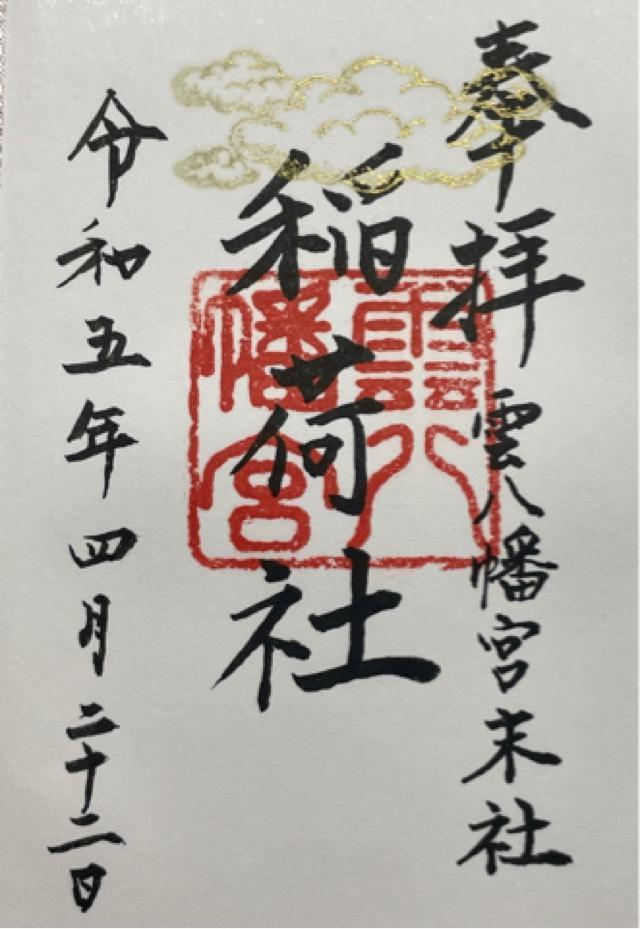 奉拝
雲八幡宮末社
稲荷社
雲八幡宮
令和五年四月二十二日